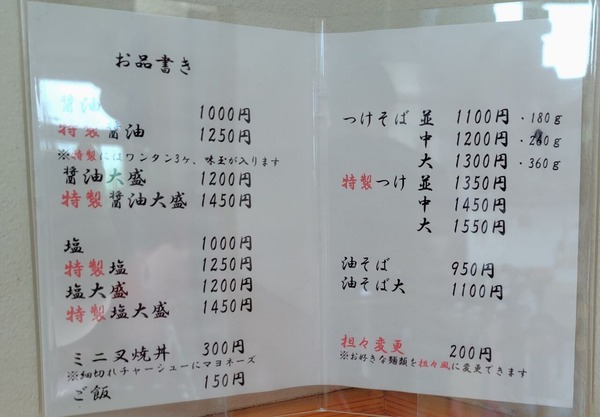 お品書き
醤油 1000円
特製醤油 1250円
※特製にはワンタン3ヶ、味玉が入ります
醤油大盛 1200円
特製醤油大盛 1450円
塩 1000円
特製塩 1250円
塩大盛 1200円
特製塩大盛 1450円
ミニ叉焼丼 300円
※細切れチャーシューにマヨネーズ
ご飯 150円
つけそば 並 1100円・180g
中 1200円・260g
大 1300円・360g
特製つけ 並 1350円
中 1450円
大 1550円
油そば 950円
油そば大 1100円
担々変更 200円
※お好きな麺類を担々風に変更できます